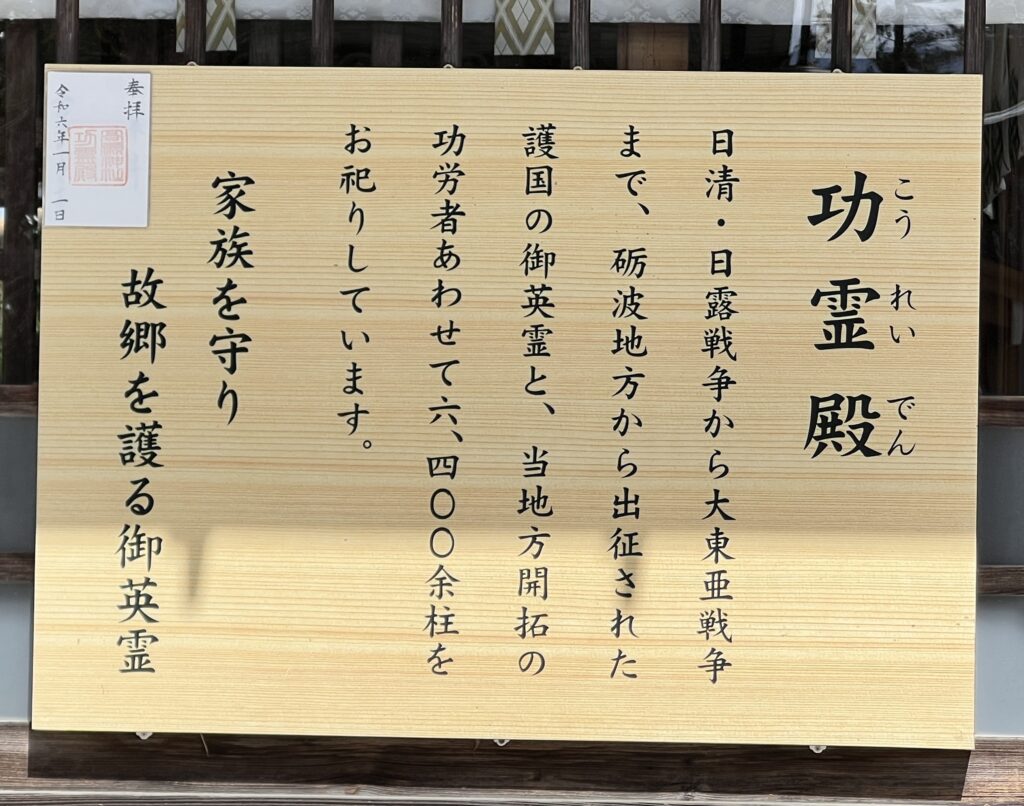 功霊殿
こうれいでん
日清・日露戦争から大東亜戦争
まで、砺波地方から出征された
護国の御英霊と、当地方開拓の
功労者あわせて六、四〇〇余柱を
お祀りしています。
家族を守り
故郷を護る御英霊
奉拝
功霊殿
令和六年一月 一日